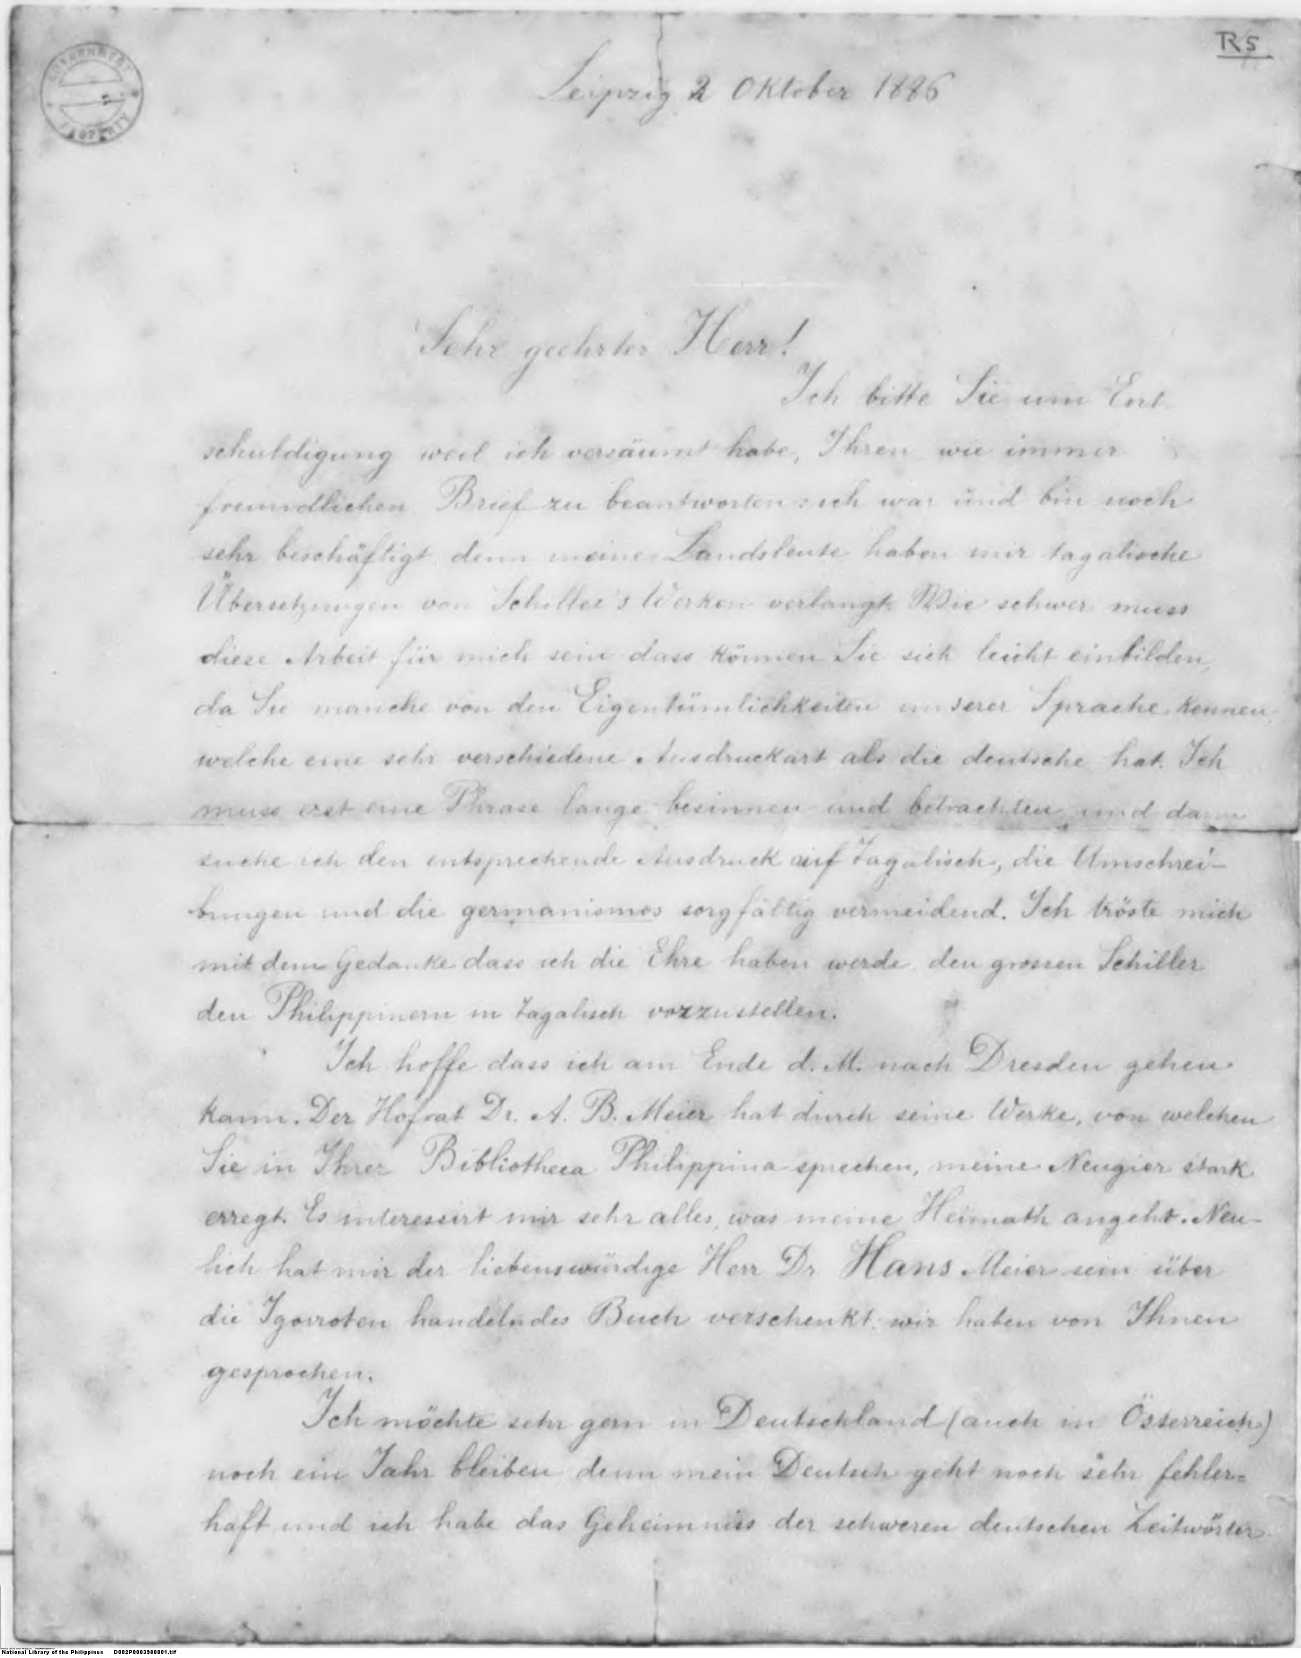 R5
Leipzig 2 Oktober 1886
Sehr geehrter Herr!
Ich bitte Sie um Ent
schuldigung weil ich versäumt habe, Ihren wie immer
freundlichen Brief zu beantworten: ich war und bin noch
sehr beschäftigt denn meine Landsleute haben mir tagalische
Übersetzungen von Schiller's Werken verlangt. Wie schwer muss
diese Arbeit für mich sein dass können Sie sich leicht einbilden,
da Sie manche von den Eigentümlichkeiten unserer Sprache kennen
welche eine sehr verschiedene Ausdruckart als die deutsche hat. Ich
muss erst eine Phrase lange besinnen und betrachten und dann
suche ich den entsprechende Ausdruck auf Tagalisch, die Umschrei-
bungen und die germanismos sorgfältig vermeidend. Ich tröste mich
mit dem Gedanke dass ich die Ehre haben werde den grossen Schiller
den Philippinern in tagalisch vorzustellen.
Ich hoffe dass ich am Ende d. M. nach Dresden gehen
kann. Der Hofrat Dr. A. B. Meier hat durch seine Werke, von welchen
Sie in Ihrer Bibliotheca Philippina sprechen, meine Neugier stark
erregt. Es interessirt mir sehr alles, was meine Heimath angeht. Neu-
lich hat mir der liebenswürdige Herr Dr Hans Meier sein über
die Igorroten handelndes Buch verschenkt: wir haben von Ihnen
gesprochen.
Ich möchte sehr gern in Deutschland (auch in Österreich)
noch ein Jahr bleiben denn mein Deutsch geht noch sehr fehler=
haft und ich habe das Geheimniss der schweren deutschen Zeitwörter
National Library of the Philippines